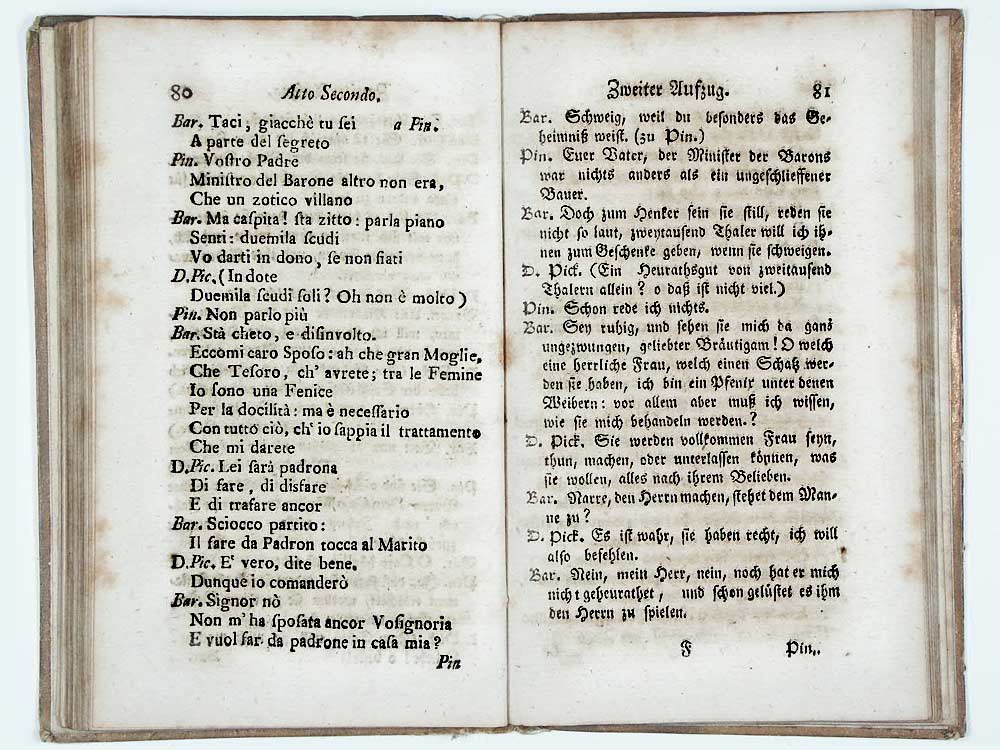 80 Atto Secondo.
Bar. Taci, giacchè tu ſei a Pin.
A parte del ſegreto
Pin. Voſtro Padre
Miniſtro del Barone altro non era,
Che un zotico villano
Bar. Ma caſpita! ſta zitto: parla piano
Senti: duemila ſcudi
Vo darti in dono, ſe non fiati
D.Pic. (In dote
Duemila ſcudi ſoli? Oh non è molto)
Pin. Non parlo più
Bar. Stà cheto, e diſinvolto.
Eccomi caro Spoſo: ah che gran Moglie,
Che Teſoro, ch' avrete; tra le Femine
Io ſono una Fenice
Per la docilità: ma è neceſſario
Con tutto ciò, ch' io ſappia il trattamento
Che mi darete
D.Pic. Lei ſarà padrona
Di fare, di disfare
E di trafare ancor
Bar. Sciocco partito:
Il fare da Padron tocca al Marito
D.Pic. E' vero, dite bene.
Dunque io comanderò
Bar. Signor nò
Non m' ha ſpoſata ancor Voſignoria
E vuol far da padrone in caſa mia?
Pin
Zweiter Aufzug. 81
Bar. Schweig, weil du beſonders das Ge-
heimniß weiſt. (zu Pin.)
Pin. Euer Vater, der Miniſter der Barons
war nichts anders als ein ungeſchlieffener
Bauer.
Bar. Doch zum Henker ſein ſie ſtill, reden ſie
nicht ſo laut, zweytauſend Thaler will ich ih-
nen zum Geſchenke geben, wenn ſie ſchweigen.
D. Pick. (Ein Heurathsgut von zweitauſend
Thalern allein? o daß iſt nicht viel.)
Pin. Schon rede ich nichts.
Bar. Sey ruhig, und ſehen ſie mich da ganz
ungezwungen, geliebter Bräutigam! O welch
eine herrliche Frau, welch einen Schatz wer-
den ſie haben, ich bin ein Phenix unter denen
Weibern: vor allem aber muß ich wiſſen,
wie ſie mich behandeln werden.?
D. Pick. Sie werden vollkommen Frau ſeyn,
thun, machen, oder unterlaſſen können, was
ſie wollen, alles nach ihrem Belieben.
Bar. Narre, den Herrn machen, ſtehet dem Man-
ne zu?
D. Pick. Es iſt wahr, ſie haben recht, ich will
alſo befehlen.
Bar. Nein, mein Herr, nein, noch hat er mich
nicht geheurathet, und ſchon gelüſtet es ihm
den Herrn zu ſpielen.
F Pin.